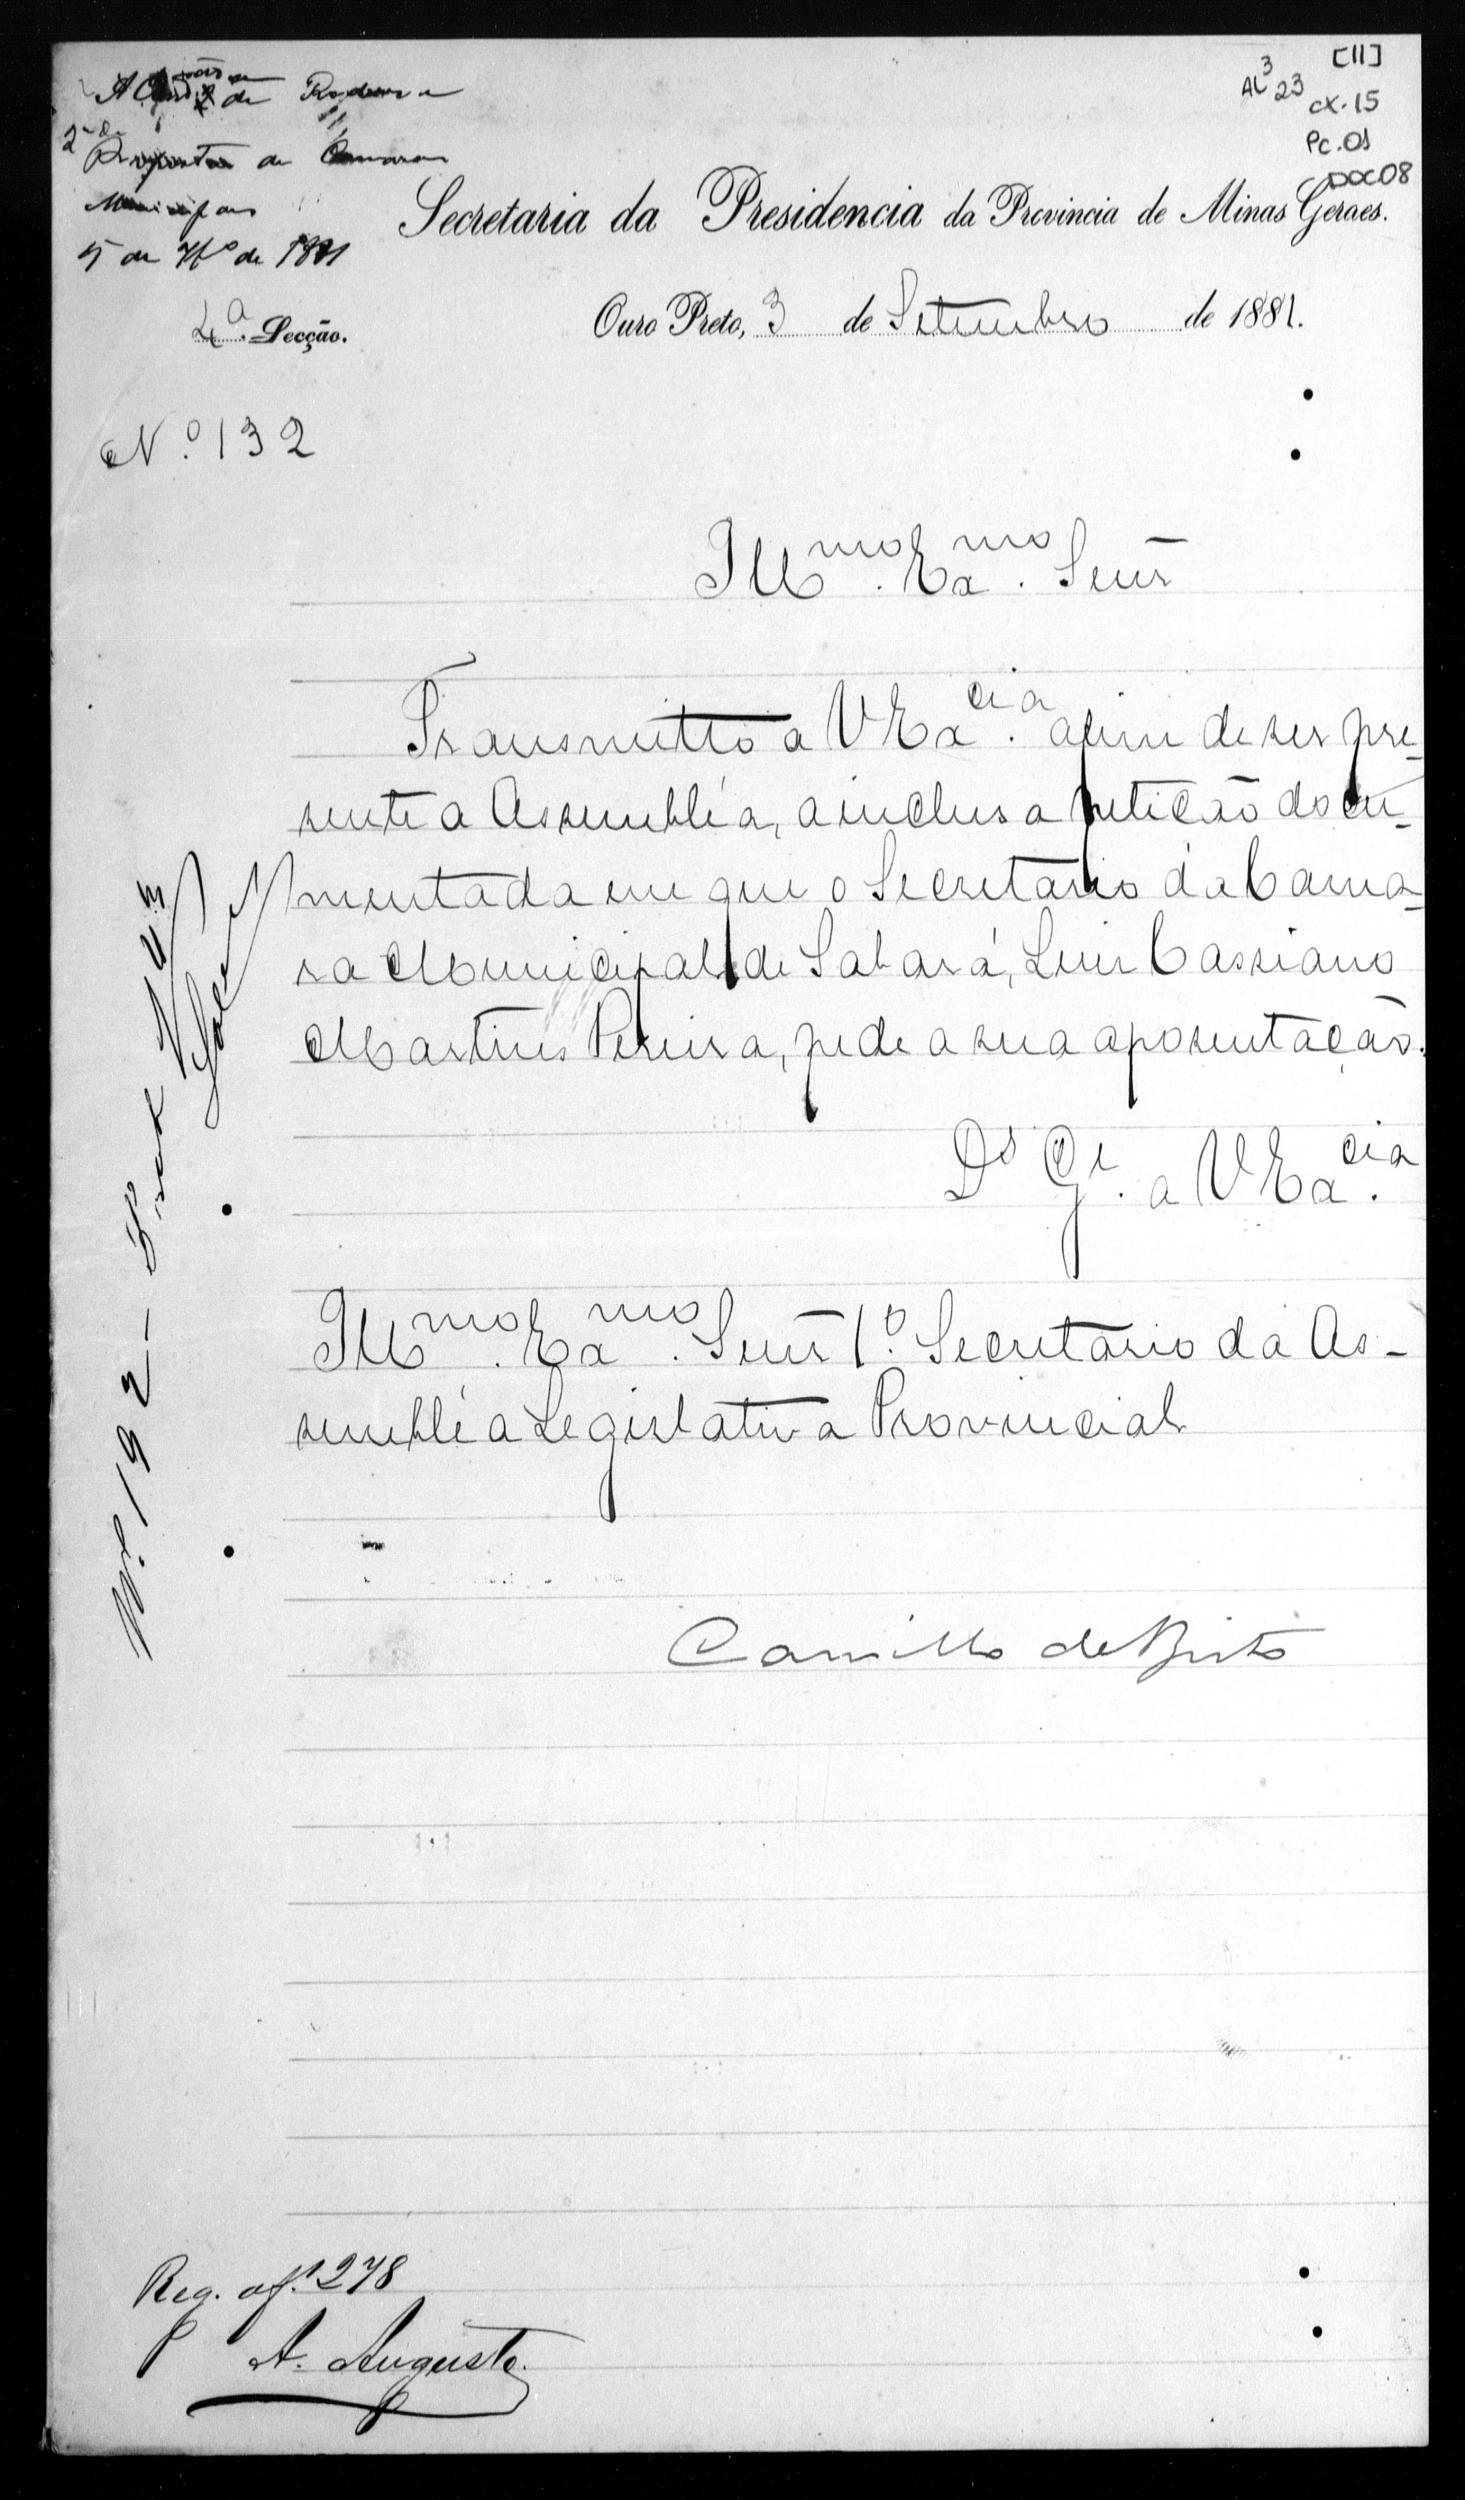 [11]
AL3 23
cx.15
Pc.01
Doc08
de
Camaras
Municipaes
5 de 7bro de 1881
Secretaria da Presidencia da Provincia de Minas Geraes.
4a. Secção.
Ouro Preto, 3 de Setembro de 1881.
No. 132
Illmo. Exmo. Senr
Transmitto a VExcia. afim de ser pre-
sente a Assembléa, a inclusa petição docu-
mentada em que o Secretario da Cama-
ra Municipal de Sabará, Luis Cassiano
Martins Pereira, pede a sua aposentação.
Ds Ge. a VExcia.
Illmo. Exmo. Senr 1o. Secretario da As-
sembléa Legislativa Provincial
Camillo de Brito
No. 192 -
Reg. a f. 278
A. Augusto.